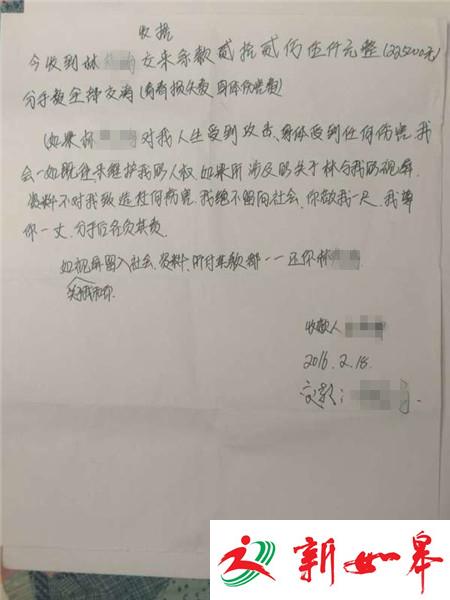 收据
今收到林 女来条款贰拾贰万伍仟元整(225000元)
分手数全部交清(青春损失费 身体伤害费)
(如果林 对我人生受到攻击、身体受到任何伤害,我
会一如既往来维护我的人权,如果所涉及的关于林与我的视屏
资料不对我致造任何伤害,我绝不留向社会,你敬我一尺,我尊
你一丈,分手后各负其责
如视屏留入社会,资料、所付来款都一一还你林
关我和你
收款人
2016.2.18.
交款:
新如皋